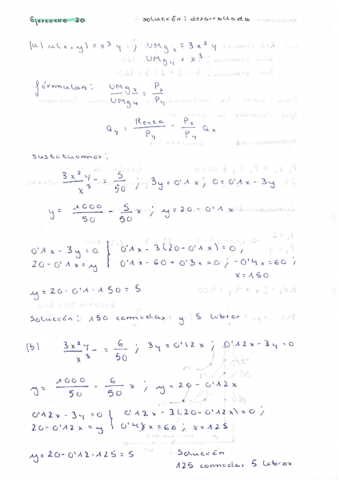 Ejercicio 20 solución: desarrollada
(a) u(x,y) = x³y ; UMgx = 3x²y
UMgy = x³
fórmulas: UMgx/UMgy = Px/Py
Qy = Renta/Py - Px/Py Qx
sustituimos:
3x²y/x³ = 5/50 ; 3y = 0'1x ; 0 = 0'1x - 3y
y = 1000/50 - 5/50 x ; y = 20 - 0'1x
0'1x - 3y = 0 } 0'1x - 3(20 - 0'1x) = 0 ;
20 - 0'1x = y 0'1x - 60 + 0'3x = 0 ; 0'4x = 60 ;
x = 150
y = 20 - 0'1 · 150 = 5
Solución: 150 comidas y 5 libros
(b) 3x²y/x³ = 6/50 ; 3y = 0'12x ; 0'12x - 3y = 0
y = 1000/50 - 6/50 x ; y = 20 - 0'12x
0'12x - 3y = 0 } 0'12x - 3(20 - 0'12x) = 0 ;
20 - 0'12x = y x = 60 ; x = 125
y = 20 - 0'12 · 125 = 5 Solución
125 comidas 5 libros